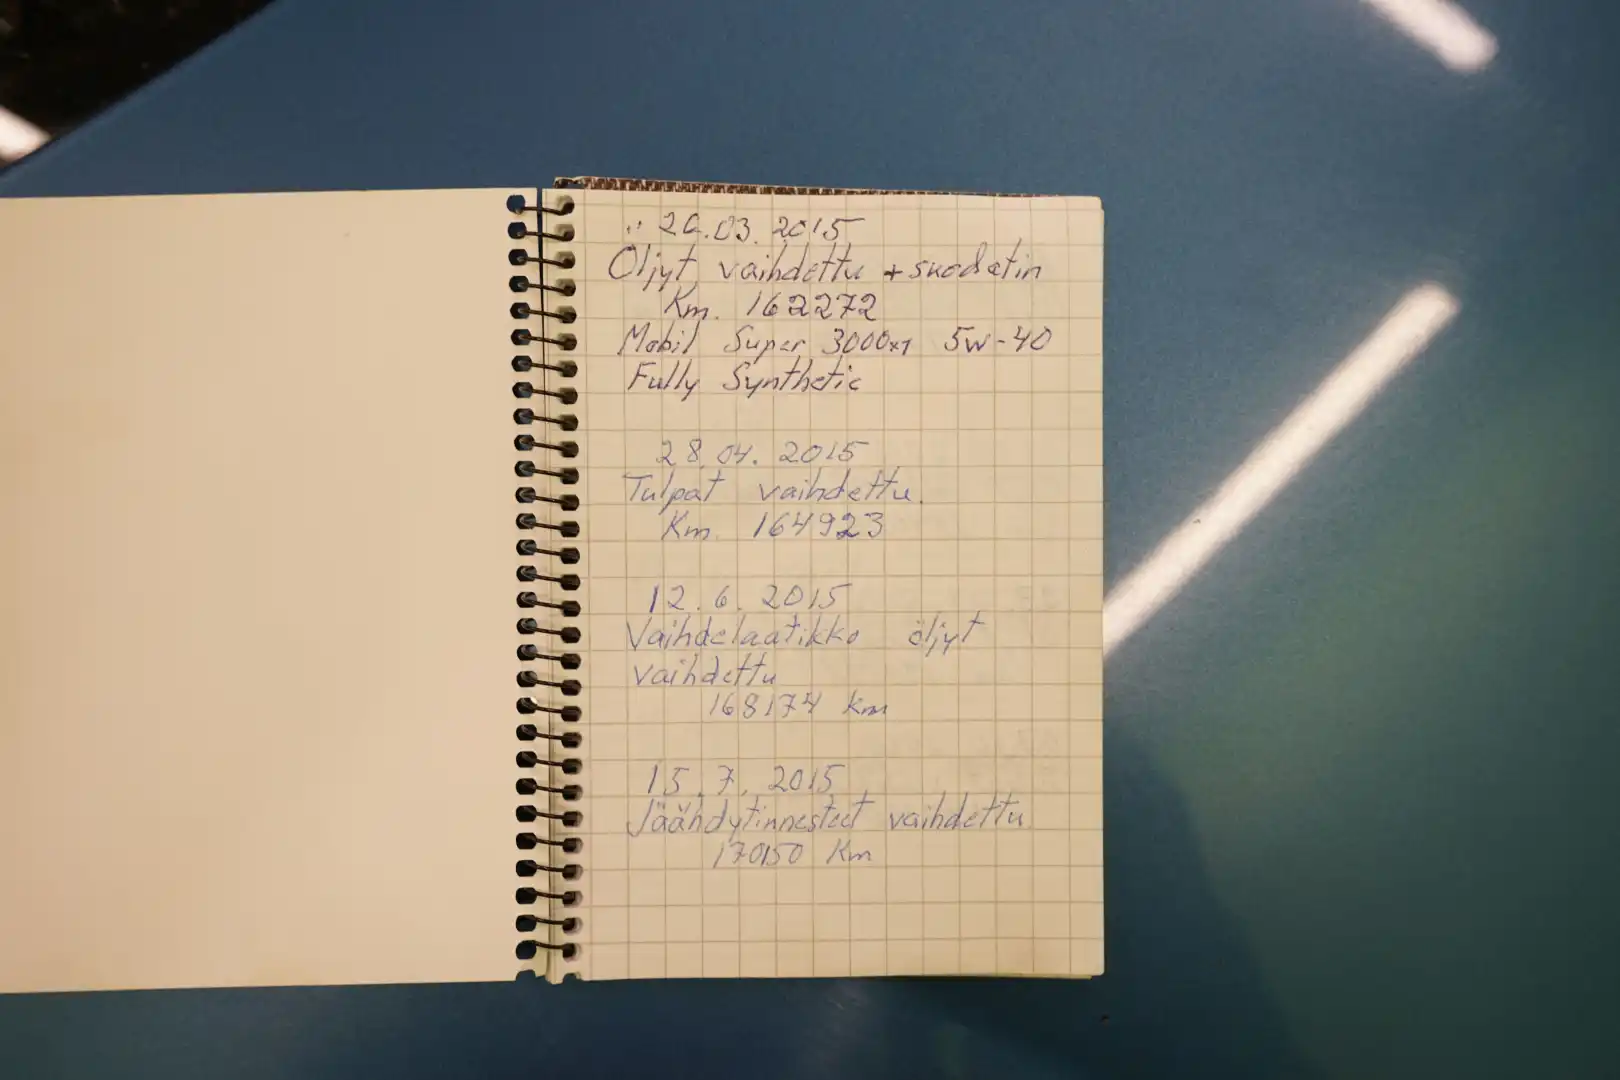 20.03.2015
Öljyt vaihdettu + suodatin
Km. 162272
Mobil Super 3000x1 5w-40
Fully Synthetic
28.04.2015
Tulpat vaihdettu.
Km. 164923
12.6.2015
Vaihdelaatikko öljyt
vaihdettu
168174 km
15.7.2015
Jäähdytinnesteet vaihdettu
170150 Km